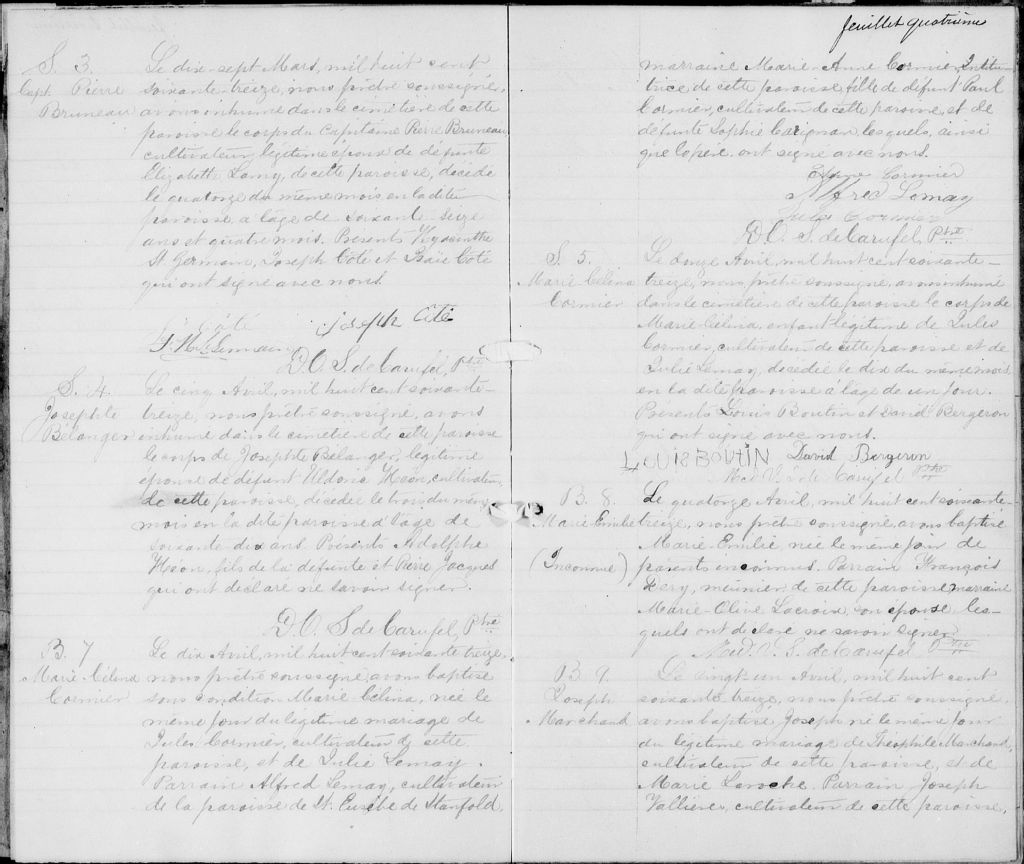 S. 3.
Capt. Pierre
Bruneau
Le dix-sept Mars, mil huit cent
soixante-treize, nous prêtre soussigné,
avons inhumé dans le cimetière de cette
paroisse le corps du Capitaine Pierre Bruneau,
cultivateur, légitime époux de défunte
Elizabeth Lamy, de cette paroisse, décédé
le quatorze du même mois en la dite
paroisse à l'âge de soixante-seize
ans et quatre mois. Présents Hyacinthe
St Germain, Joseph Coté et Isaïe Coté
qui ont signé avec nous.
Joseph Côté
D. O. S. de Carufel, Ptre
S. 4.
Josephte
Bélanger
Le cinq Avril, mil huit cent soixante-
treize, nous prêtre soussigné, avons
inhumé dans le cimetière de cette paroisse
le corps de Josephte Bélanger, légitime
épouse de défunt Houon, cultivateur,
de cette paroisse, décédée le trois du même
mois en la dite paroisse à l'âge de
soixante-dix ans. Présents Adolphe
fils de la défunte et Pierre Jacques
qui ont déclaré ne savoir signer.
D. O. S de Carufel, Ptre
B. 7
Marie Célina
Cormier
Le dix Avril, mil huit cent soixante treize,
nous prêtre soussigné, avons baptisé
sous condition Marie Célina, née le
même jour du légitime mariage de
Jules Cormier, cultivateur de cette
paroisse, et de Julie Lemay.
Parrain Alfred Lemay, cultivateur
de la paroisse de St. Eusèbe de Stanfold,
feuillet quatrième
marraine Marie-Anne Cormier, Institu-
trice de cette paroisse, fille de défunt Paul
Cormier, cultivateur de cette paroisse, et de
défunte Sophie Carignan, lesquels, ainsi
que le père, ont signé avec nous.
Cormier
Alfred Lemay
Jules Cormier
D. O. S. de Carufel, Ptre
S 5.
Marie Célina
Cormier
Le douze Avril, mil huit cent soixante-
treize, nous prêtre soussigné, avons inhumé
dans le cimetière de cette paroisse le corps de
Marie Célina, enfant légitime de Jules
Cormier, cultivateur de cette paroisse et de
Julie Lemay, décédée le dix du même mois
en la dite paroisse à l'âge de un jour.
Présents Louis Boutin et David Bergeron
qui ont signé avec nous.
LOUIS BOUTIN David Bergeron
de Carufel Ptre
B. 8.
Marie Emilie
(Inconnue)
Le quatorze Avril, mil huit cent soixante-
treize, nous prêtre soussigné, avons baptisé
Marie-Emilie, née le même jour de
parents inconnus. Parrain François
Déry, meunier de cette paroisse, marraine
Marie-Olive Lacroix, son épouse, les-
quels ont déclaré ne savoir signer.
S. de Carufel Ptre
B 9.
Joseph
Marchand
Le vingt-un Avril, mil huit cent
soixante-treize, nous prêtre soussigné,
avons baptisé Joseph né le même jour
du légitime mariage de Théophile Marchand,
cultivateur de cette paroisse, et de
Marie Laroche. Parrain Joseph
Vallières, cultivateur de cette paroisse,